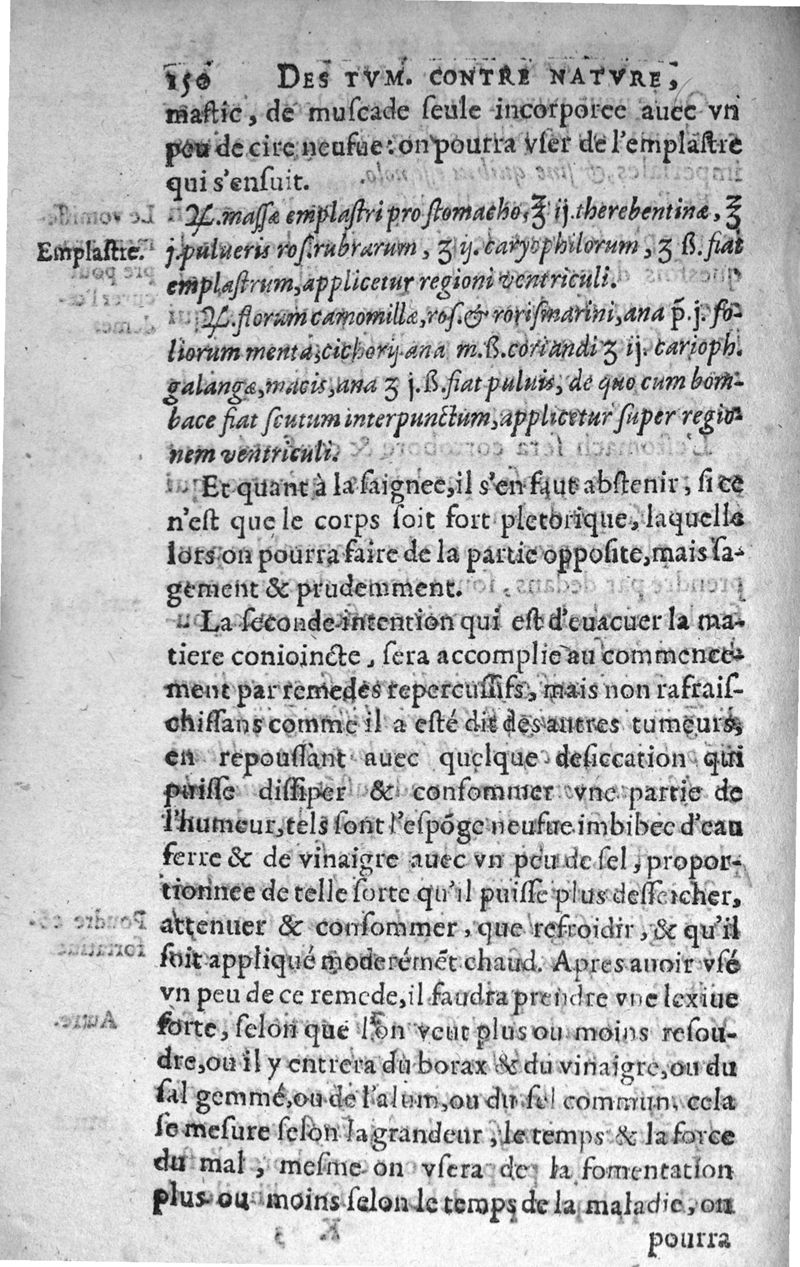 150 DES TVM. CONTRE NATVRE,
mastic, de muscade seule incorporee auec vn
peu de cire neufue: on pourra vser de l'emplastre
qui s'ensuit.
℞. massæ emplastri pro stomacho, ℥ ij. therebentinæ, ℥
Emplastre.
j. pulueris ros. rubrarum, ʒ ij. caryophilorum, ʒ ß. fiat
emplastrum, applicetur regioni ventriculi.
℞. florum camomillæ, ros. & rorismarini, ana p̄. j. fo-
liorum mentæ, cichorij ana m. ß. coriandi ʒ ij. carioph.
galangæ, macis, ana ʒ j. ß. fiat puluis, de quo cum bom-
bace fiat scutum interpunctum, applicetur super regio-
nem ventriculi.
Et quant à la saignee, il s'en faut abstenir, si ce
n'est que le corps soit fort pletorique, laquelle
lors on pourra faire de la partie opposite, mais sa-
gement & prudemment.
La seconde intention qui est d'euacuer la ma-
tiere conioincte, sera accomplie au commence-
ment par remedes repercussifs, mais non rafrais-
chissans comme il a esté dit des autres tumeurs,
en repoussant avec quelque desiccation qui
puisse dissiper & consommer vne partie de
l'humeur, tels sont l'espōge neufue imbibee d'eau
ferre & de vinaigre avec vn peu de sel, propor-
tionnee de telle sorte qu'il puisse plus desseicher,
attenuer & consommer, que refroidir, & qu'il
soit appliqué moderémēt chaud. Apres auoir vsé
vn peu de ce remede, il faudra prendre vne lexiue
forte, selon que l'on veut plus ou moins resou-
dre, ou il y entrera du borax & du vinaigre, ou du
sal gemmé, ou de l'alum, ou du sel commun, cela
se mesure selon la grandeur, le temps & la force
du mal, mesme on vsera de la fomentation
plus ou moins selon le temps de la maladie, on
pourra